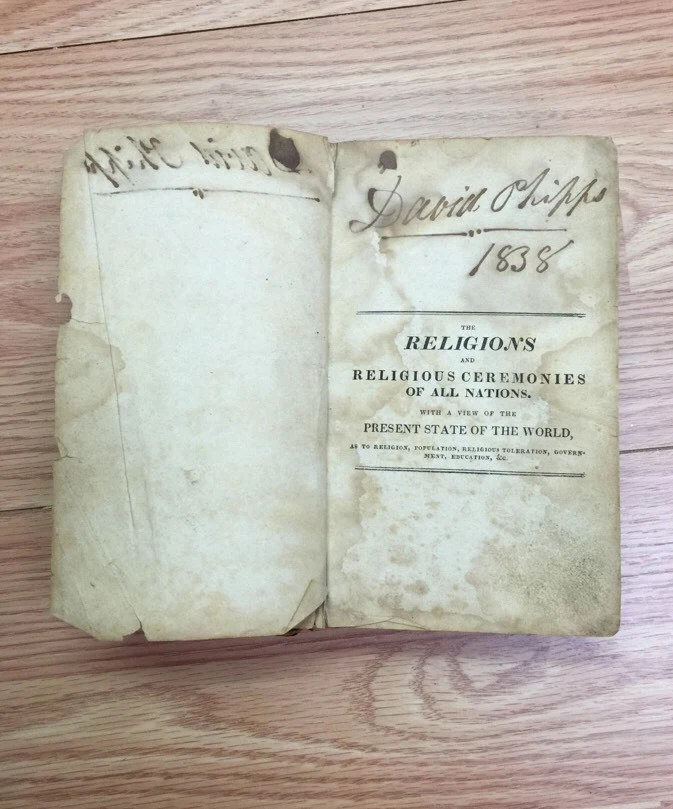 David Phipps
David Phipps
1838
THE
RELIGIONS
AND
RELIGIOUS CEREMONIES
OF ALL NATIONS.
WITH A VIEW OF THE
PRESENT STATE OF THE WORLD,
AS TO RELIGION, POPULATION, RELIGIOUS TOLERATION, GOVERN-
MENT, EDUCATION, &c.